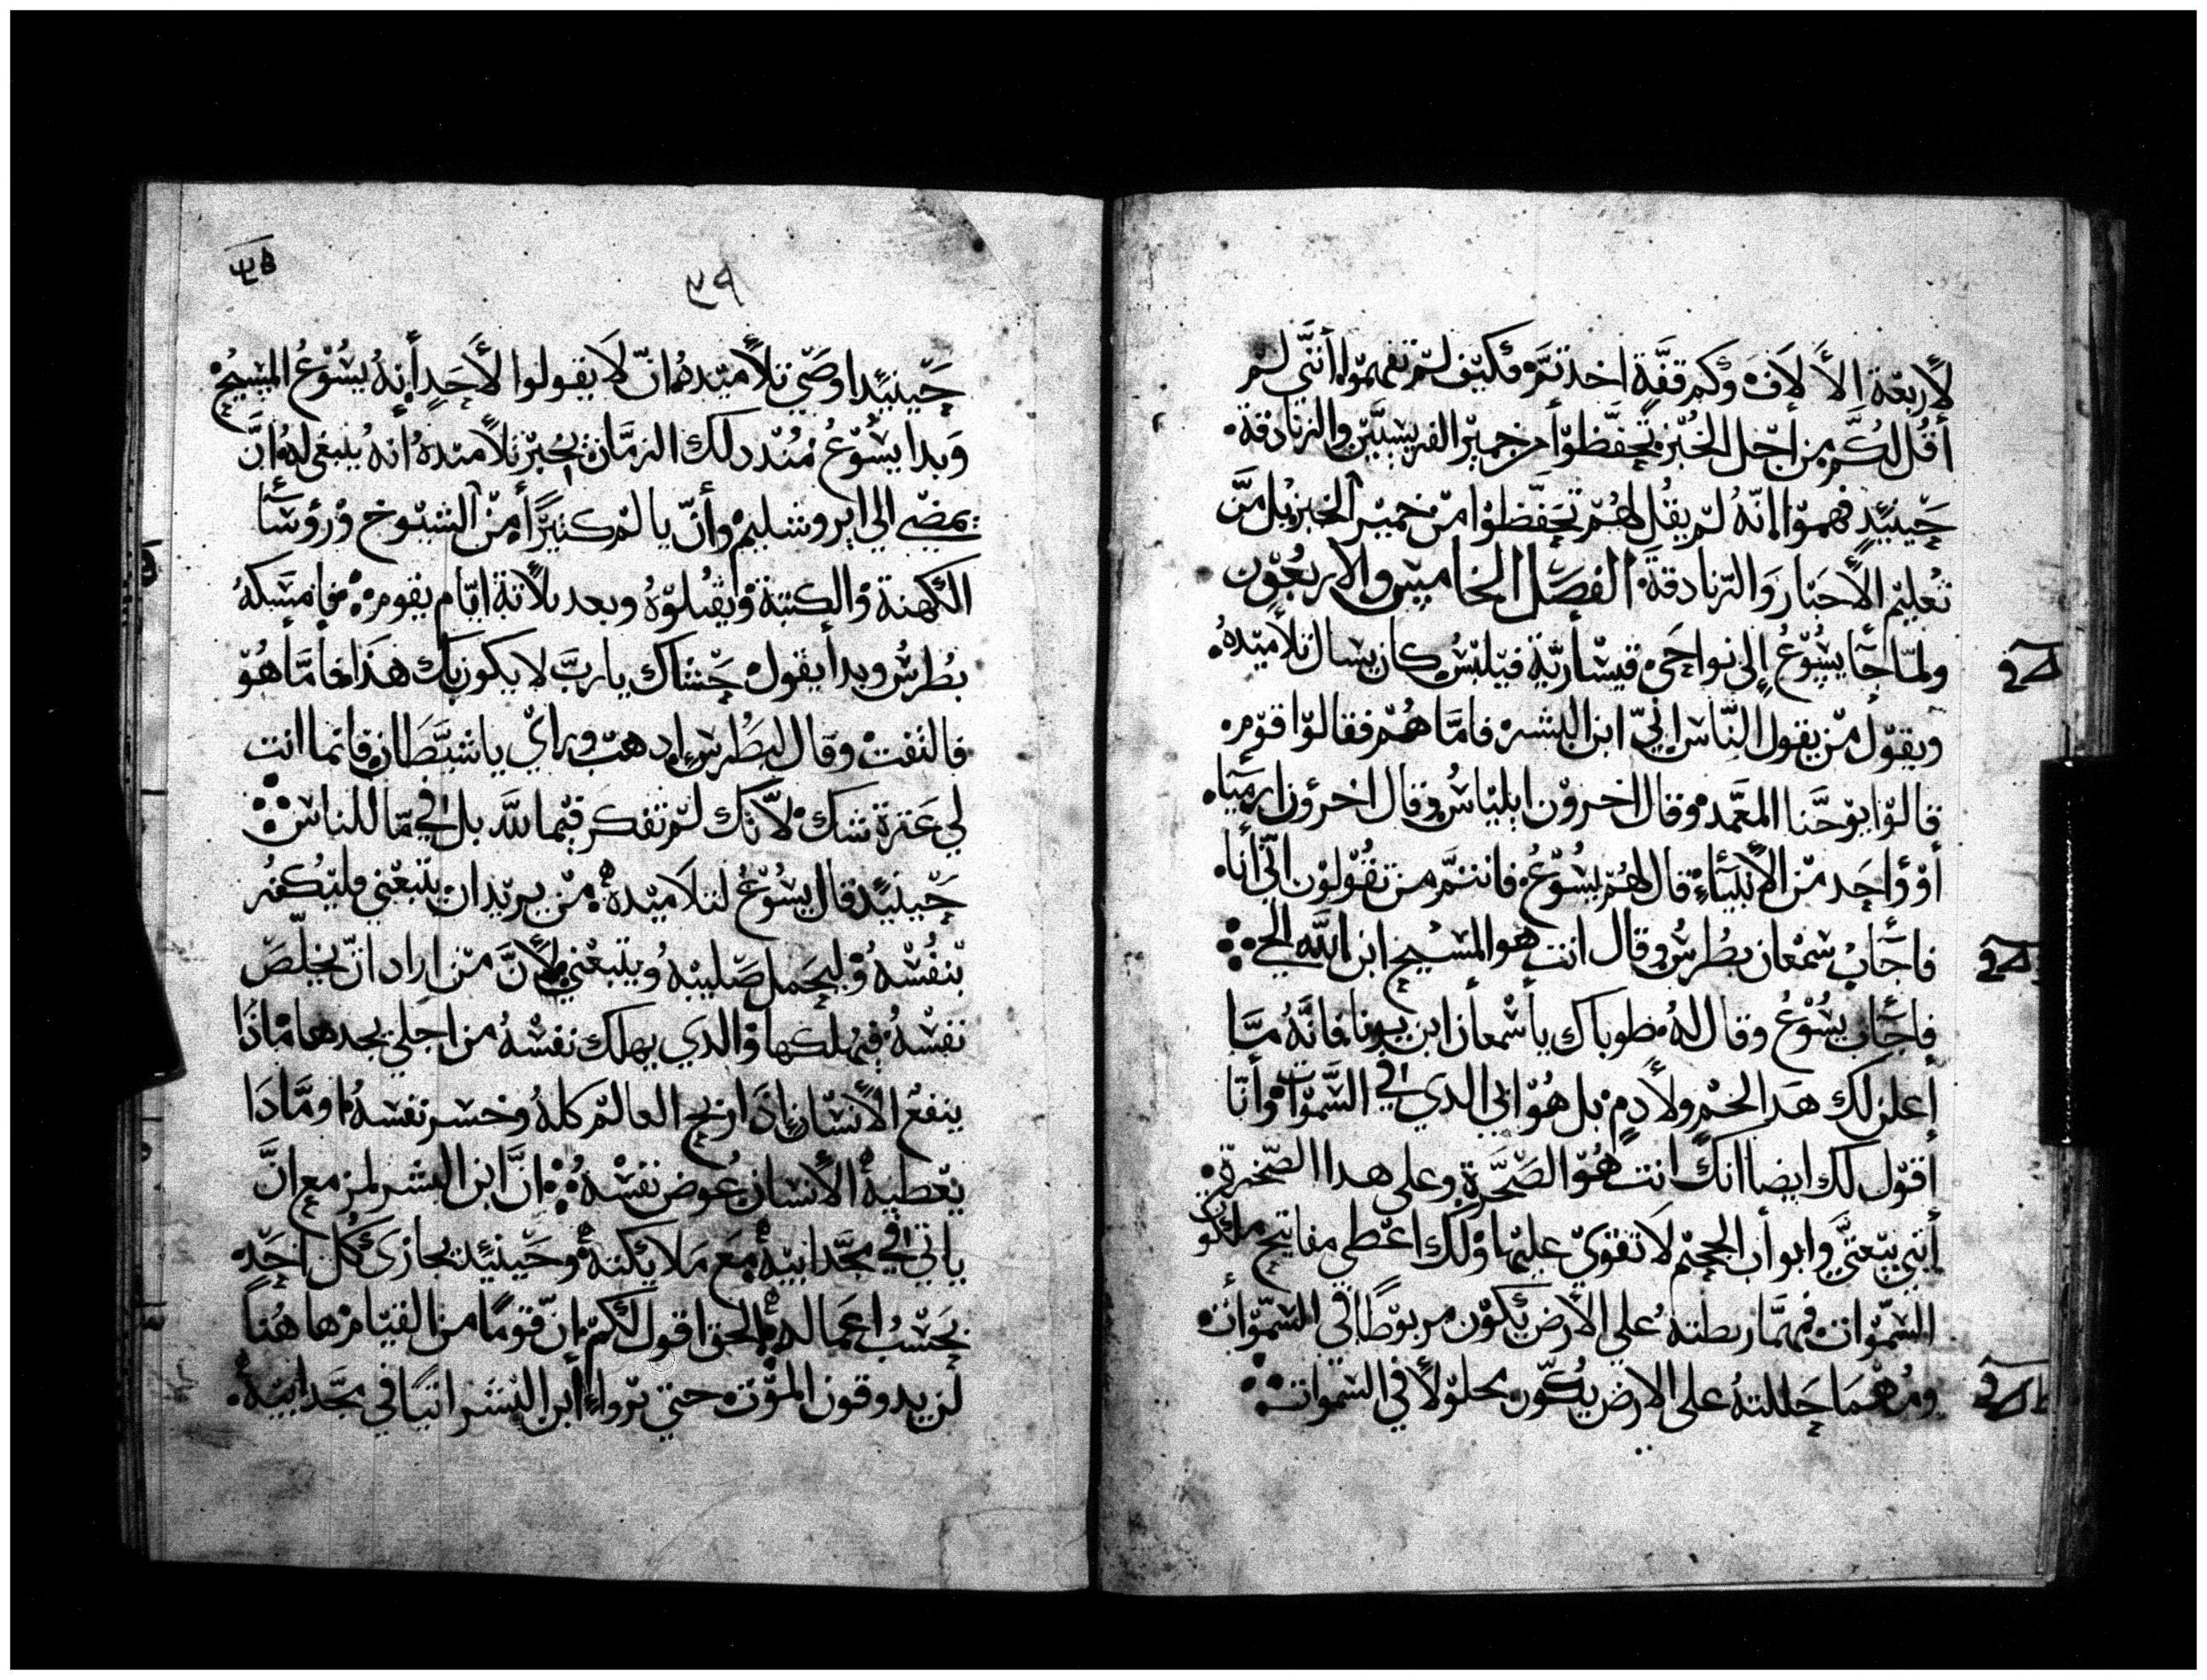 لأربعة الألاف وكم قفة اخدتم فكيف لم تفهموا أنني لم
أقل لكم من اجل الخبز تحفظوا من خمير الفريسيين والزنادقة
حينيد فهموا إنه لم يقل لهم تحفظوا من خمير الخبز بل من
تعليم الأحبار والزنادقة الفصل الخاميس والاربعون
ولما جا يسوع إلى نواحي قيسأرية فيلبس كان يسال تلاميده
ويقول من يقول الناس إني ابن البشر فاما هم فقالوا قوم
قالوا يوحنا المعمد وقال اخرون ايلياس وقال اخرون ارمياء
أو وأحد من الأنبياء قال لهم يسوع فانتم من تقولون اني أنا
فاجاب سمعان بطرس وقال انت هو المسيح ابن الله الحي
فاجاب يسوع وقال له طوباك ياسمعان ابن يونا فانه ما
أعلن لك هدا لحم ولا دم بل هو ابي الدي في السموات وأنا
اقول لك ايضا انك انت هو الصخرة وعلى هدا الصخرة
أبني بيعتي وابواب الجحيم لا تقوي عليها ولك اعطي مفاتيح ملكو
السموات فمهما ربطته على الأرض يكون مربوطا في السموات
ومهما حللته على الارض يكون محلولا في السموات
٣٩
حينيدا وصي تلاميده ان لا يقولوا لأحد أنه يسوع المسيح
وبدا يسوع مند دلك الزمان يخبر تلاميده أنه ينبغي له ان
يمضي الي ايروشليم وأن يالم كثيرا من الشيوخ ورؤسأ
الكهنة والكتبة ويقتلوه وبعد تلاتة ايام يقوم فامسكه
بطرس وبدأ يقول حشاك يارب لا يكون بك هذا فاما هو
فالتفت وقال لبطرس ادهب وراي ياشيطان فانما انت
لي عترة شك لانك لم تفكر فيما لله بل في ما للناس
حينيد قال يسوع لتلاميده من يريد ان يتبعني فليكفر
بنفسه وليحمل صليبه ويتبعني لأن من اراد ان يخلص
نفسه فيهلكها والدي يهلك نفسه من اجلي يجدها ماذا
ينفع الأنسان إذا ربح العالم كله وخسر نفسه او مادا
يعطيه الأنسان عوض نفسه ان ابن البشر لمزمع ان
ياتي في مجد ابيه مع ملايكته وحينيد يجازي كل احد
بحسب اعماله الحق اقول لكم ان قوما من القيام هاهنا
لن يدوقون الموت حتي يروا ابن البشر اتيا في مجد ابيه